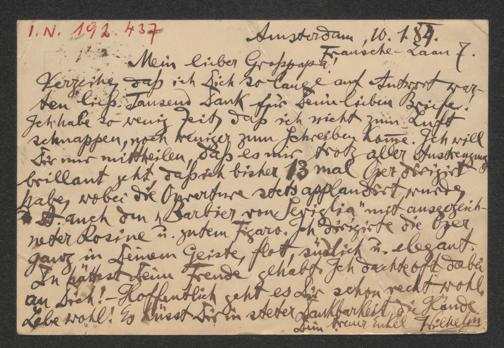 I.N. 192.437
Amsterdam, 10. 1. 87.
Fransche-Laan 7.
Mein lieber Grosspapa!
Verzeihe, daß ich Dich so lange auf Antwort war-
ten ließ. Tausend Dank für Deine lieben Briefe!
Ich habe so wenig Zeit, daß ich nicht zum Luft
schnappen, noch weniger zum Schreiben komme. Ich will
Dir nur mittheilen, daß es mir trotz aller Anstrengung
brillant geht, daß ich bisher 13 mal Oper dirigirt
habe, wobei die Ouverture stets applaudirt wurde,
auch den "Barbier von Seviglia" mit ausgezeich-
neter Rosine u. gutem Figaro. Ich dirigirte die Oper
ganz in Deinem Geiste, flott, südlich u. elegant.
Du hättest Deine Freude gehabt. Ich dachte oft dabei
an Dich! - Hoffentlich geht es Dir schon recht wohl
Lebe wohl! Es küsst Dir in steter Dankbarkeit die Hände
Dein treuer Enkel Wilhelm